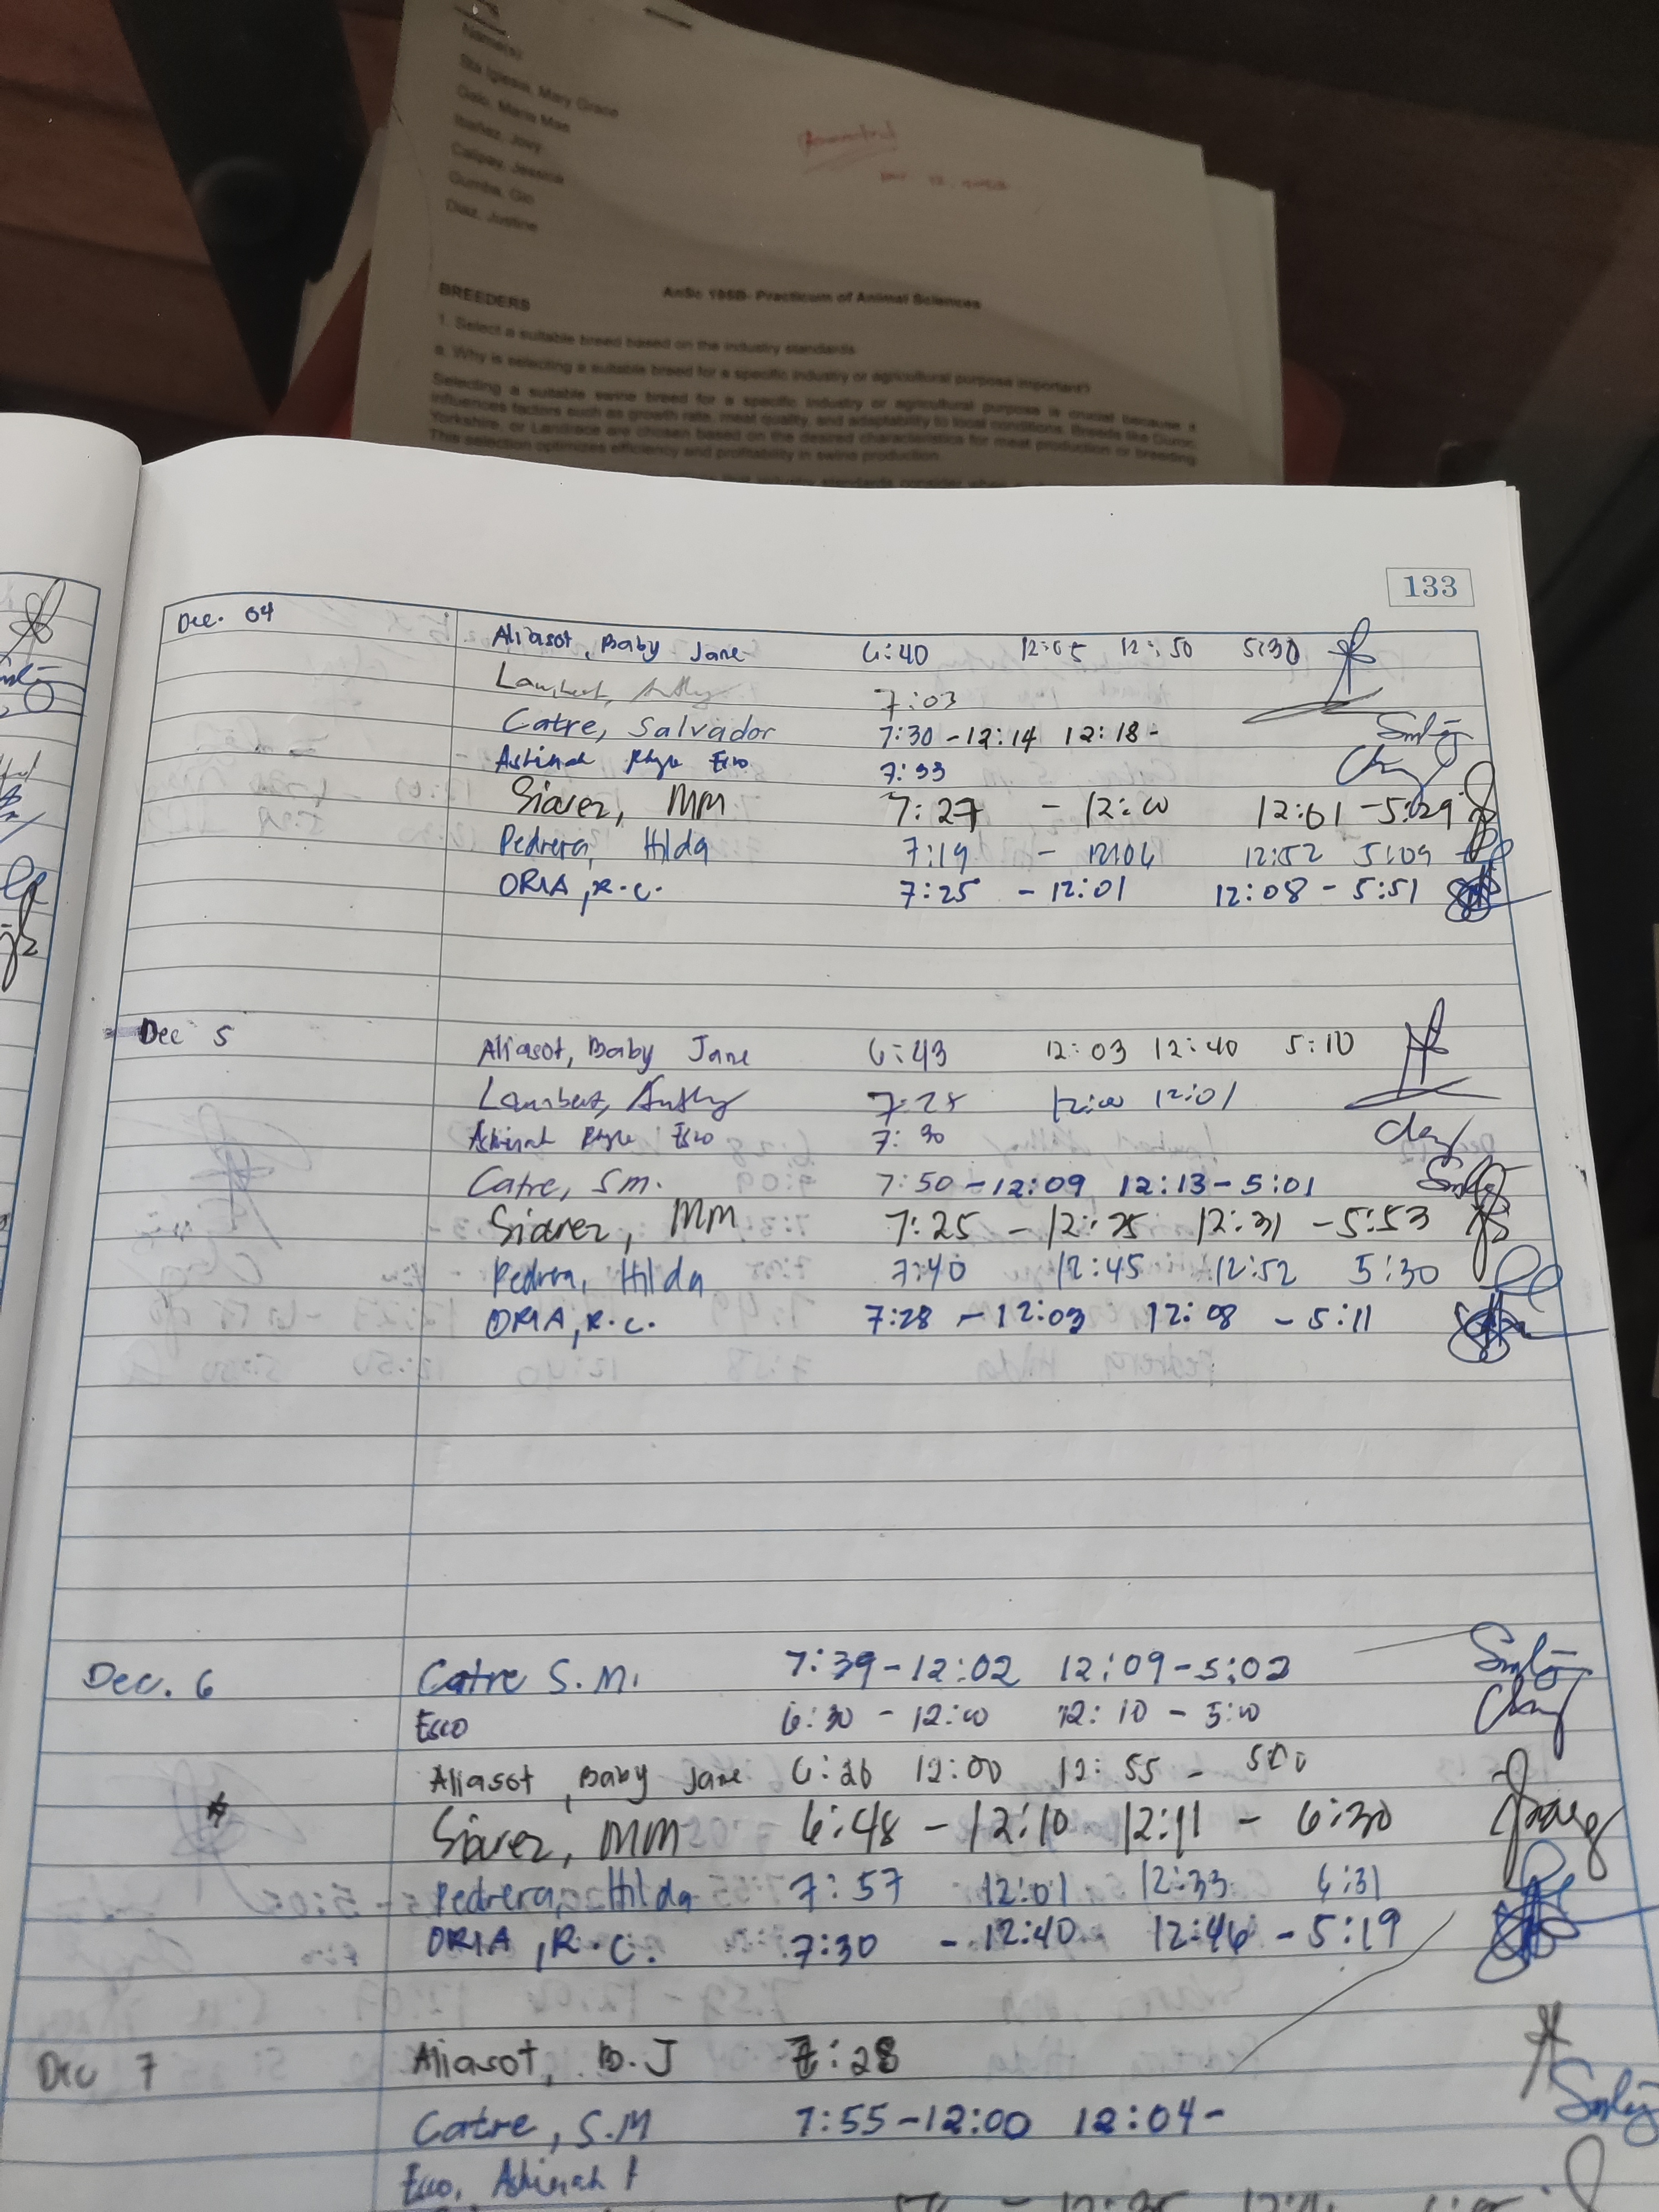 Name(s)
Sta Iglesia, Mary Grace
Galo, Maria Mae
Ibañez, Jovy
Calipay, Jessica
Gumba, Gio
Diaz, Justine
AnSc 195B- Practicum of Animal Sciences
BREEDERS
1. Select a suitable breed based on the industry standards
a. Why is selecting a suitable breed for a specific industry or agricultural purpose important?
Selecting a suitable swine breed for a specific industry or agricultural purpose is crucial because it
influences factors such as growth rate, meat quality, and adaptability to local conditions. Breeds like Duroc,
Yorkshire, or Landrace are chosen based on the desired characteristics for meat production or breeding
This selection optimizes efficiency and profitability in swine production
industry standards consider when
133
Dec. 04 Aliasot, Baby Jane 6:40 12:05 12:50 5:30
Lambert, 7:03
Catre, Salvador 7:30 - 12:14 12:18 -
Ashinah Rhyu Esco 7:33
Siarez, MM 7:27 - 12:00 12:01 - 5:29
Pedrera, Hilda 7:19 - 12:06 12:52 5:09
ORIA, R.C. 7:25 - 12:01 12:08 - 5:51
Dec 5 Aliasot, Baby Jane 6:43 12:03 12:40 5:10
Lambert, 12:00 12:01
Ashinah Rhyu Esco 7:30
Catre, Sm. 7:50 - 12:09 12:13 - 5:01
Siarez, MM 7:25 - 12:25 12:31 - 5:53
Pedrera, Hilda 7:40 12:45 12:52 5:30
ORIA, R.C. 7:28 - 12:03 12:08 - 5:11
Dec. 6 Catre S.M. 7:39 - 12:02 12:09 - 5:02
Esco 6:30 - 12:00 12:10 - 5:00
Aliasot, Baby Jane 6:26 12:00 12:55 - 5:00
Siarez, MM 6:48 - 12:10 12:11 - 6:30
Pedrera, Hilda 7:57 12:01 12:33 6:31
ORIA, R.C. 7:30 - 12:40 12:46 - 5:19
Dec 7 Aliasot, B.J 7:28
Catre, S.M 7:55 - 12:00 12:04 -
Esco, Ashinah